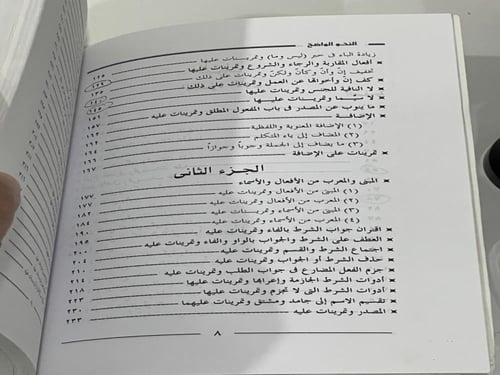 النحو الواضح
زيادة الباء فى خبر (ليس وما) وتمرينات عليها
× أفعال المقاربة والرجاء والشروع وتمرينات عليها ١٣٥
تخفيف إنّ وأنّ وكأنّ ولكنّ وتمرينات عليه
× كف إنّ وأخواتها عن العمل وتمرينات على ذلك
× لا النافية للجنس وتمرينات عليها
× لا سيّما وتمرينات عليها
× ما ينوب عن المصدر فى باب المفعول المطلق وتمرينات عليه
× الإضافة ١٥٧
(١) الإضافة المعنوية واللفظية
(٢) المضاف إلى ياء المتكلم ١٦٢
(٣) ما يضاف إلى الجملة وجوباً وجوازاً ١٦٤
× تمرينات على الإضافة ١٦٧
الجزء الثانى
× المبنى والمعرب من الأفعال والأسماء
(١) المبنى من الأفعال وتمرينات عليه ١٧٧
(٢) المعرب من الأفعال وتمرينات عليه ١٧٧
(٣) المبنى من الأسماء وتمرينات عليه ١٨٢
(٤) المعرب من الأسماء وتمرينات عليه ١٨٤
× اقتران جواب الشرط بالفاء وتمرينات عليه ١٩٥
× العطف على الشرط والجواب بالواو والفاء وتمرينات عليه
× اجتماع الشرط والقسم وتمرينات عليه ٢٠٠
× حذف الشرط أو الجواب وتمرينات عليه ٢٠٤
× جزم الفعل المضارع فى جواب الطلب وتمرينات عليه ٢١٠
× أدوات الشرط الجازمة وإعرابها وتمرينات عليها ٢١٤
× أدوات الشرط التى لا تجزم وتمرينات عليها ٢١٨
× تقسيم الاسم إلى جامد ومشتق وتمرينات عليهما ٢٢٣
× المصدر وتمرينات عليه ٢٣٠
٢٣٣
٨